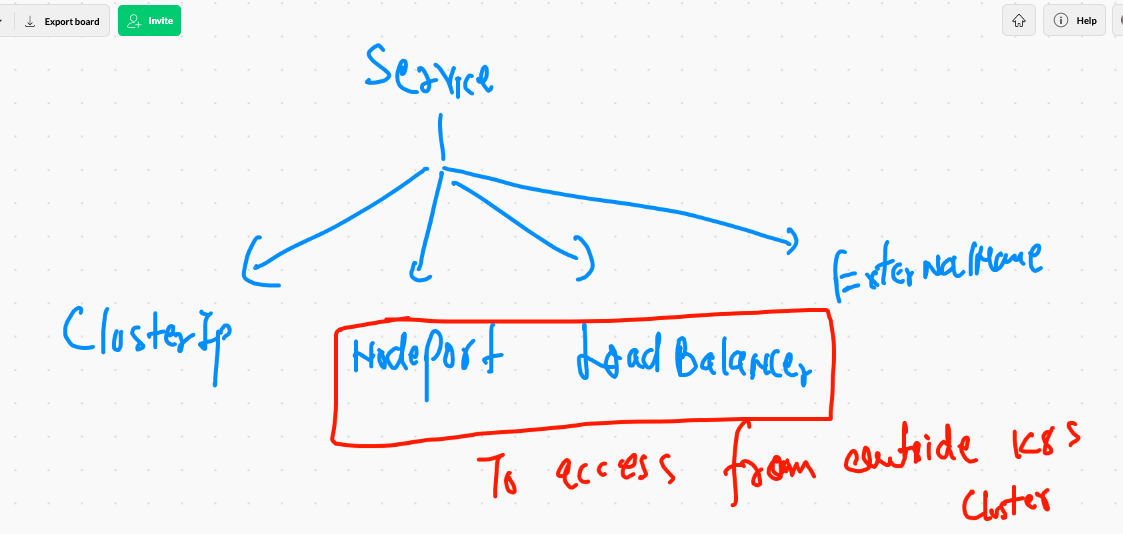 Export board
Invite
Help
Service
ClusterIp
NodePort
LoadBalancer
ExternalName
To access from outside K8s
Cluster